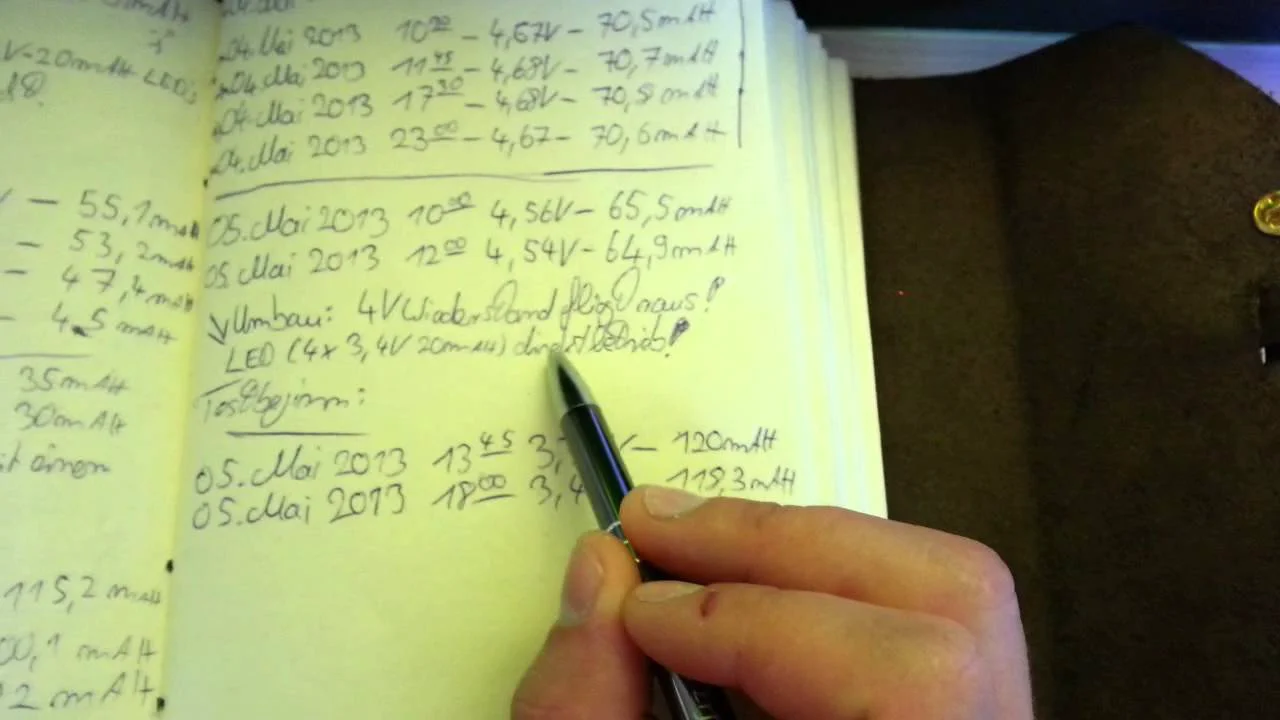 V-20mAH LED's
55,1mAH
53,2mAH
47,4mAH
4.5mAH
35mAH
30mAH
einem
115,2 mAH
00,1 mAH
2 mAH
04.Mai 2013 10 – 4,67V – 70,5mAH
04.Mai 2013 11 45 – 4,68V – 70,7mAH
04.Mai 2013 17 30 – 4,68V – 70,8mAH
04.Mai 2013 23 00 – 4,67 – 70,6mAH
05.Mai 2013 10 00 4,56V – 65,5mAH
05.Mai 2013 12 00 4,54V – 64,9mAH
Umbau: 4V Wiederstand fliegt raus!
LED (4x 3,4V 20mAH) direktbetrieb!
Testbeginn:
05.Mai 2013 13 45 3, V – 120mAH
05.Mai 2013 18 00 3,4 118,3mAH